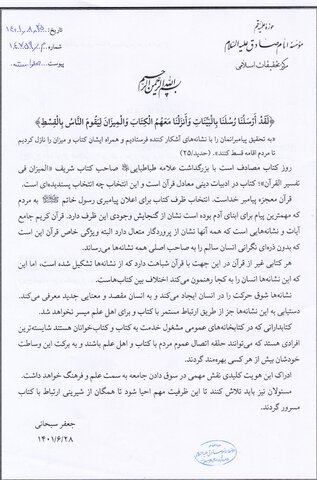 حوزه علمیه قم
مؤسسه امام صادق علیه السلام
مرکز تحقیقات اسلامی
تاریخ:
شماره:
پیوست:
بسم الله الرحمن الرحیم
﴿لَقَدْ أَرْسَلْنَا رُسُلَنَا بِالْبَيِّنَاتِ وَأَنْزَلْنَا مَعَهُمُ الْكِتَابَ وَالْمِيزَانَ لِيَقُومَ النَّاسُ بِالْقِسْطِ﴾
«به تحقیق پیامبرانمان را با نشانه‌های آشکار کننده فرستادیم و همراه ایشان کتاب و میزان را نازل کردیم
تا مردم اقامه قسط کنند». (حدید/۲۵)
روز کتاب مصادف است با بزرگداشت علامه طباطبایی صاحب کتاب شریف «المیزان فی
تفسیر القرآن»؛ کتاب در ادبیات دینی معادل قرآن است و این انتخاب چه انتخاب پسندیده‌ای است.
قرآن معجزه پیامبر خداست. انتخاب ظرف کتاب برای اعلان پیامبری رسول خاتم به مردم
که مهمترین پیام برای ابنای آدم بوده است نشان از گنجایش وجودی این ظرف دارد. قرآن کریم جامع
آیات و نشانه‌هایی است که همه آنها نشان از پروردگار متعال دارد البته ویژگی خاص قرآن این است که
بدون ذره‌ای نگرانی انسان سالم را به صاحب اصلی همه نشانه‌ها می‌رساند.
هر کتابی غیر از قرآن در این جهت با قرآن شباهت دارد که از نشانه‌ها تشکیل شده است، اما این
که این نشانه‌ها انسان را به کجا رهنمون می‌کند اختلاف بین کتاب‌هاست.
نشانه‌ها شوق حرکت را در انسان ایجاد می‌کند و به انسان مقصد و معنایی جدید معرفی می‌کند.
دستیابی به این نشانه‌ها جز از طریق ارتباط مستمر با کتاب و برای اهل علم میسر نخواهد شد.
کتابدارانی که در کتابخانه‌های عمومی مشغول خدمت به کتاب و کتاب‌خوانان هستند شایسته‌ترین
افرادی هستند که می‌توانند حلقه اتصال عموم مردم با کتاب و اهل علم باشند و به برکت این وساطت
خودشان بیش از هر کسی بهره‌مند گردند.
ادراک این هویت کلیدی نقش مهمی در سوق دادن جامعه به سمت علم و فرهنگ خواهد داشت.
مسئولان نیز باید تلاش کنند تا این ظرفیت مهم احیا شود تا همگان از شیرینی ارتباط با کتاب
مسرور گردند.
جعفر سبحانی
۱۴۰۱/۶/۲۸